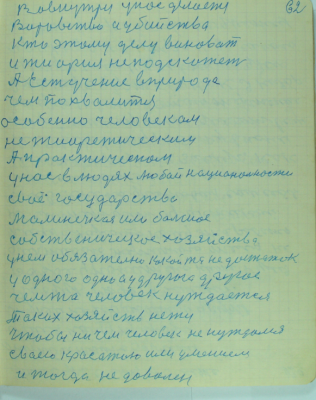 Вовнутри у нас думает 62
Воровство и убийства
Кто этому делу виноват
и тиория не подскажет
А Естучение в природе
чем похвалится
особенно человекам
не тиоретическим
А практическом
у нас в людях любой национальности
своё государства
Малинечкая или болшое
собственицкое хозяйства
у нем обязательно какойта недостаток
у одного одно а у другога другое
чемта человек нуждается
Таких хозяйств нету
Чтобы ни чем человек не нуждался
сваею красатою или умением
и тогда не доволен